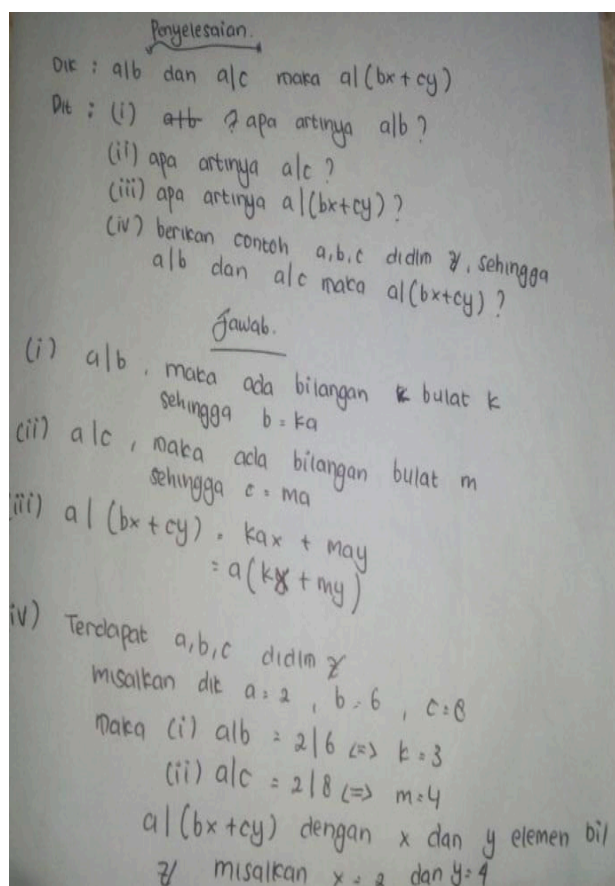 Penyelesaian.
Dik : a|b dan a|c maka a|(bx+cy)
Dit : (i) a+b ? apa artinya a|b ?
(ii) apa artinya a|c ?
(iii) apa artinya a|(bx+cy) ?
(iv) berikan contoh a,b,c didlm Z, sehingga
a|b dan a|c maka a|(bx+cy) ?
Jawab.
(i) a|b , maka ada bilangan k bulat k
sehingga b = ka
(ii) a|c , maka ada bilangan bulat m
sehingga c = ma
(iii) a|(bx+cy) = kax + may
= a(kx + my)
iv) Terdapat a,b,c didlm Z
misalkan dik a = 2 , b = 6 , c = 8
maka (i) a|b = 2|6 <=> k = 3
(ii) a|c = 2|8 <=> m = 4
a|(bx+cy) dengan x dan y elemen bil
Z misalkan x = 2 dan y = 4